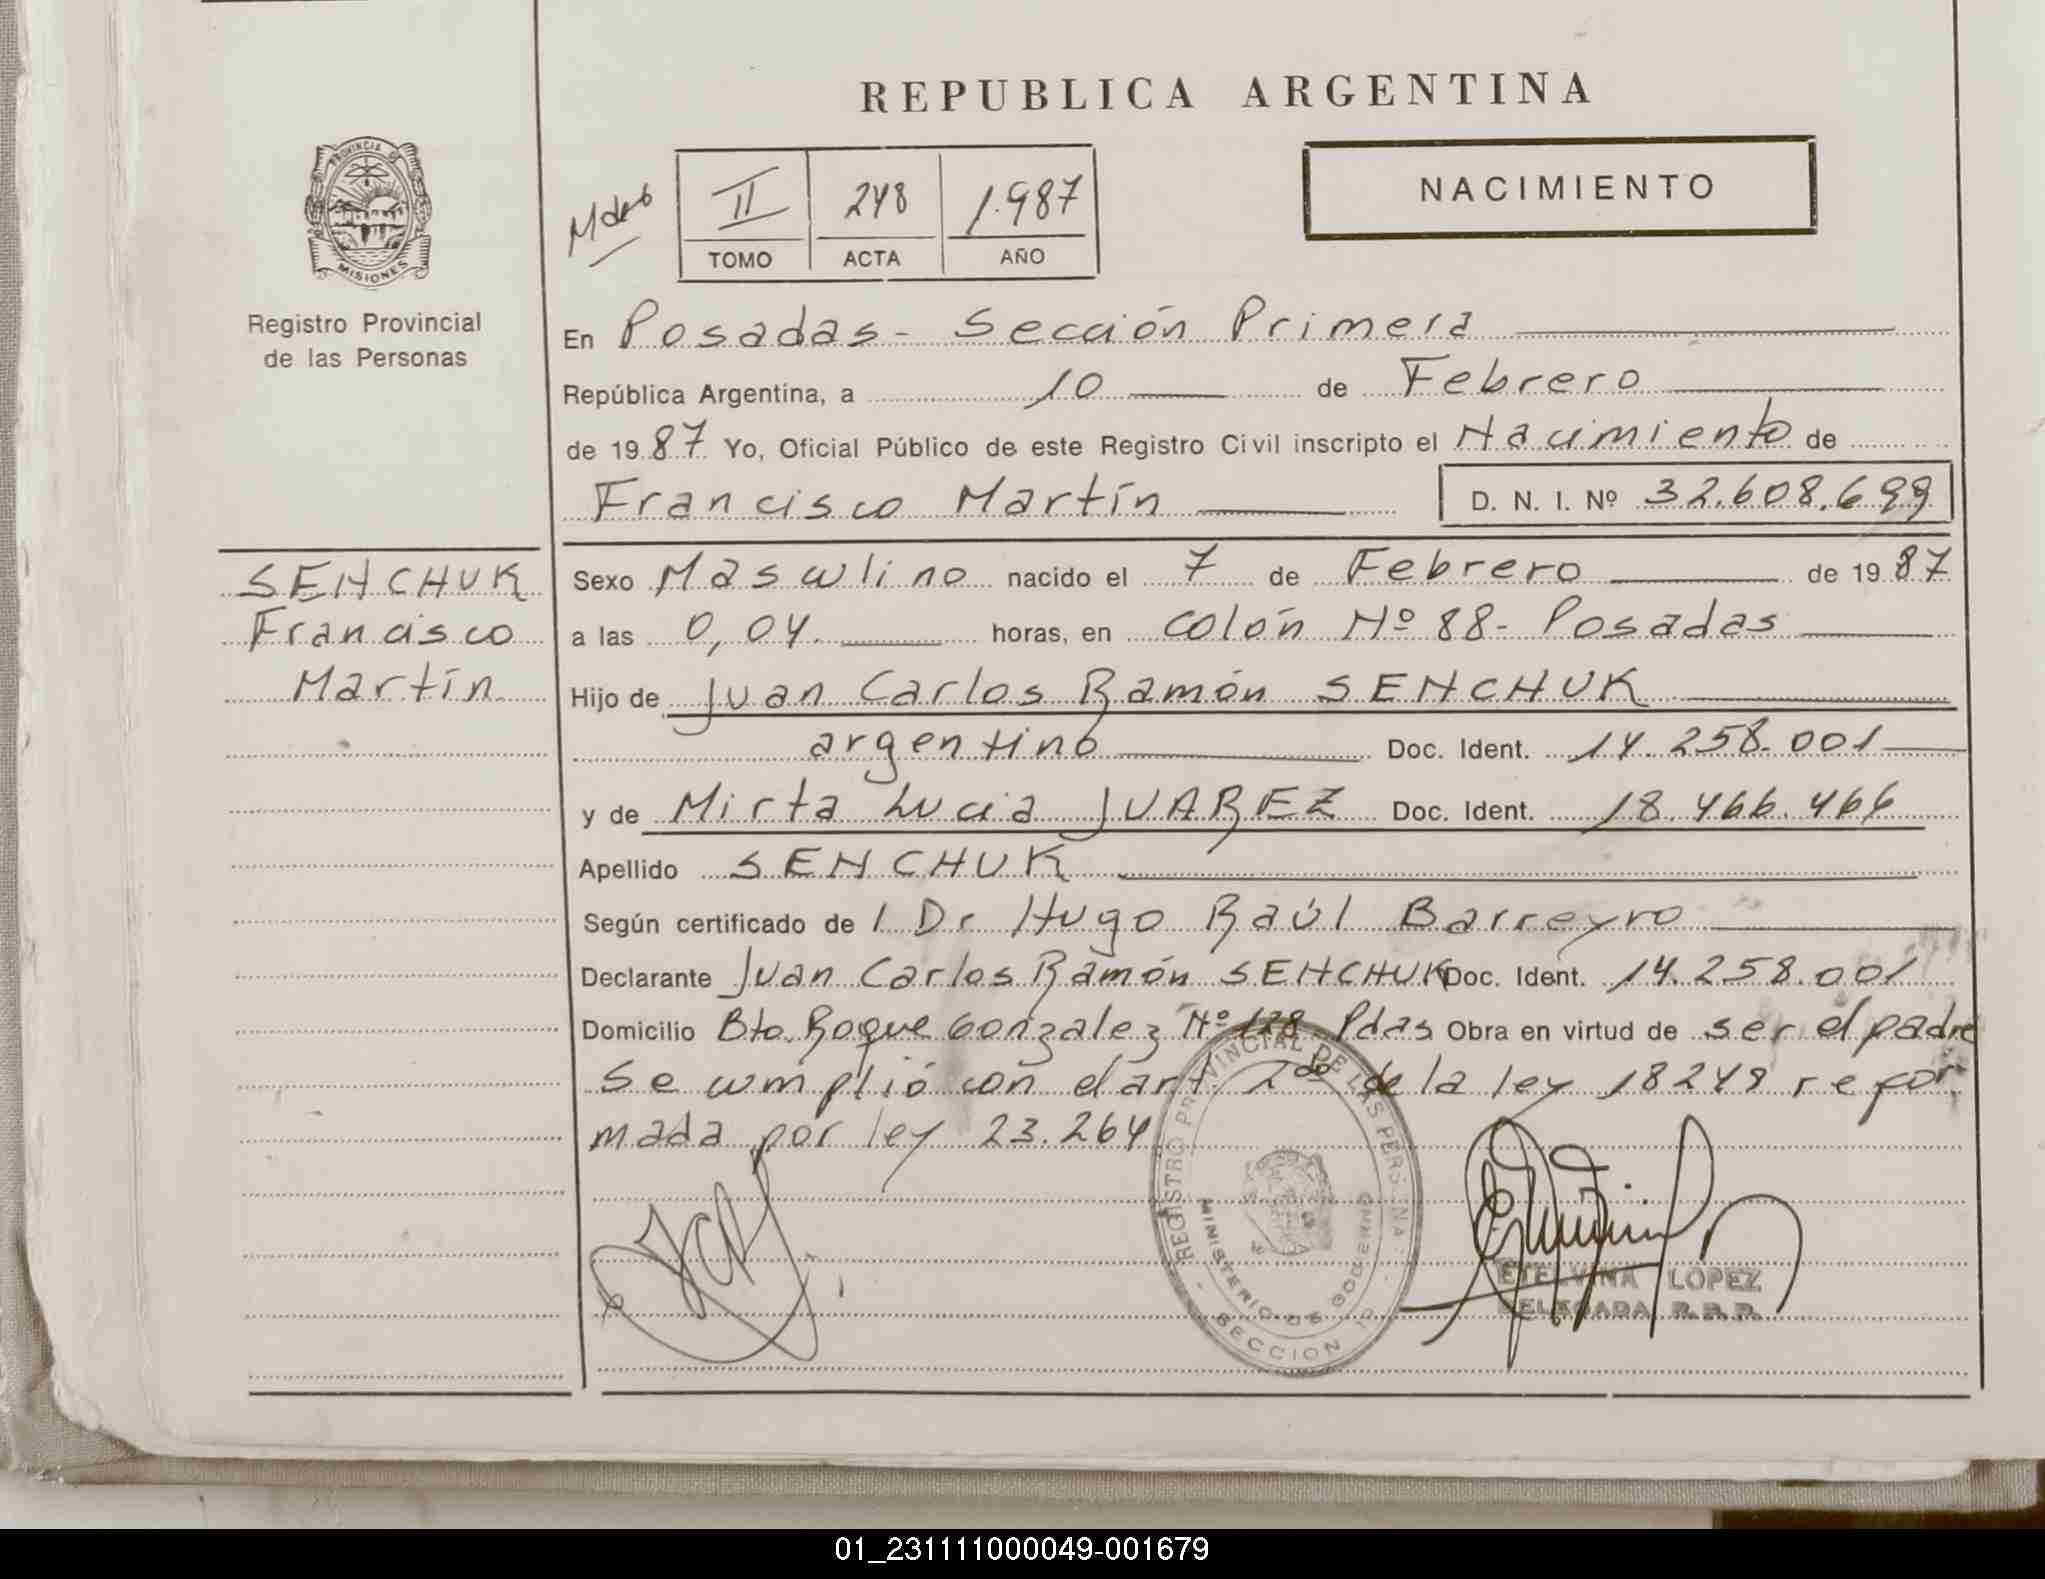 REPUBLICA ARGENTINA
PROVINCIA DE
MISIONES
Registro Provincial
de las Personas
II 248 1.987
TOMO ACTA AÑO
NACIMIENTO
En Posadas - Sección Primera
República Argentina, a 10 de Febrero
de 1987 Yo, Oficial Público de este Registro Civil inscripto el Nacimiento de
Francisco Martín D. N. I. Nº 32.608.699
SENCHUK
Francisco
Martín
Sexo Masculino nacido el 7 de Febrero de 1987
a las 0,04. horas, en Colón Nº 88- Posadas
Hijo de Juan Carlos Ramón SENCHUK
argentino Doc. Ident. 14.258.001
y de Mirta Lucia JUAREZ Doc. Ident. 18.466.466
Apellido SENCHUK
Según certificado de l Dr Hugo Raúl Barreyro
Declarante Juan Carlos Ramón SENCHUK Doc. Ident. 14.258.001
Domicilio Bto. Roque Gonzalez Nº 128 Pdas Obra en virtud de ser el padre
Se cumplió con el art. 2do de la ley 18248 refor
mada por ley 23.264
REGISTRO PROVINCIAL DE LAS PERSONAS
MINISTERIO DE GOBIERNO
SECCION 1a
ETELVINA LOPEZ
DELEGADA R.P.P.
01_231111000049-001679